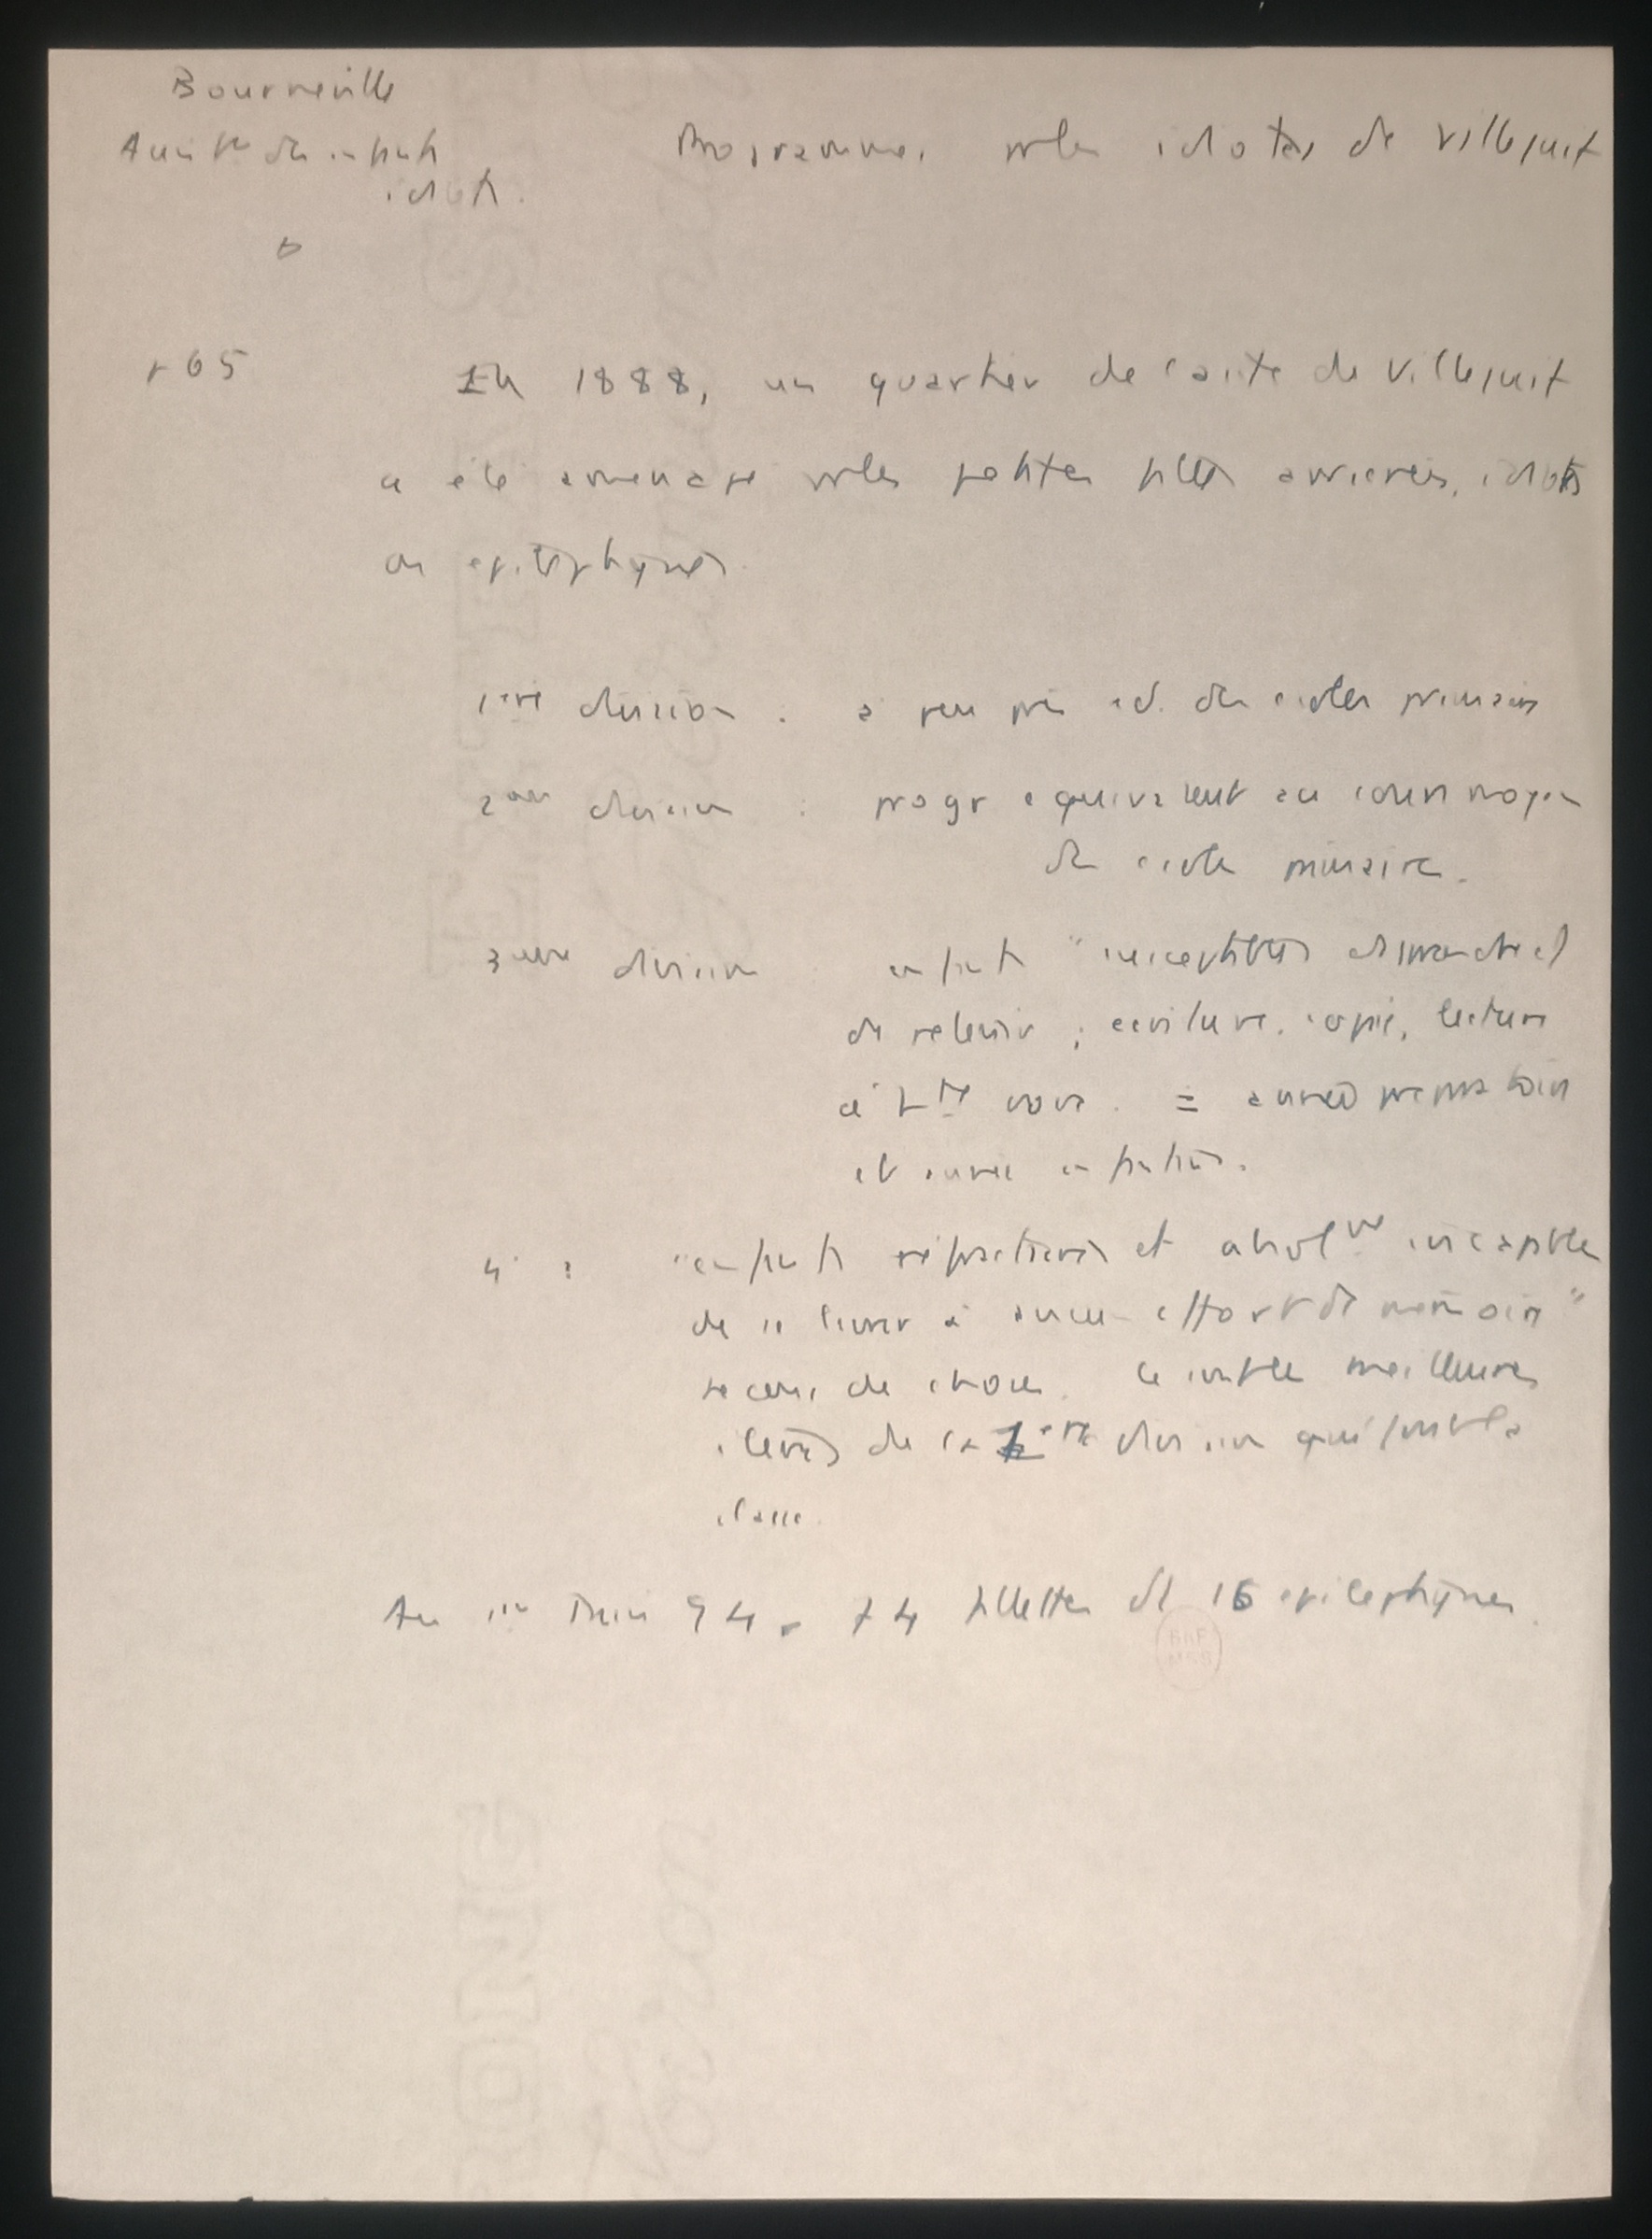 Bourneville
Assist ce des enfants
idiots.
Programmes pr les idiotes de Villejuif
p 65
En 1888, un quartier de l'asile de Villejuif
a été aménagé pr les petites filles arriérées, idiotes
ou épileptiques.
1ère division : à peu près cel. des écoles primaires
2ème division : progr équivalent au cours moyen
de école primaire.
3ème division : enfants "susceptibles d'apprendre et
de retenir ; écriture, copie, lecture
à hte voix. = année préparatoire
et année enfantine.
4e : "enfants réfractaires et absolmt incapables
de se livrer à aucun effort de mémoire"
leçons de choses. Ce sont les meilleures
élèves de la 1ère division qui font la
classe.
Au 1er Juin 94, 74 fillettes dt 16 épileptiques.
BnF
MSS